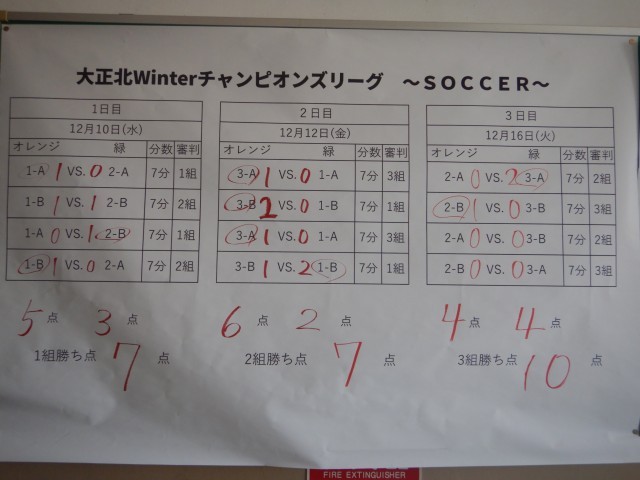 大正北Winterチャンピオンズリーグ　～SOCCER～
1日目
12月10日(水)
オレンジ 緑 分数 審判
1-A 1 VS. 0 2-A 7分 1組
1-B 1 VS. 1 2-B 7分 2組
1-A 0 VS. 1 2-B 7分 1組
1-B 1 VS. 0 2-A 7分 2組
5点 3点
1組勝ち点 7点
2日目
12月12日(金)
オレンジ 緑 分数 審判
3-A 1 VS. 0 1-A 7分 3組
3-B 2 VS. 0 1-B 7分 1組
3-A 1 VS. 0 1-A 7分 3組
3-B 1 VS. 2 1-B 7分 1組
6点 2点
2組勝ち点 7点
3日目
12月16日(火)
オレンジ 緑 分数 審判
2-A 0 VS. 2 3-A 7分 2組
2-B 1 VS. 0 3-B 7分 3組
2-A 0 VS. 0 3-B 7分 2組
2-B 0 VS. 0 3-A 7分 3組
4点 4点
3組勝ち点 10点
FIRE EXTINGUISHER